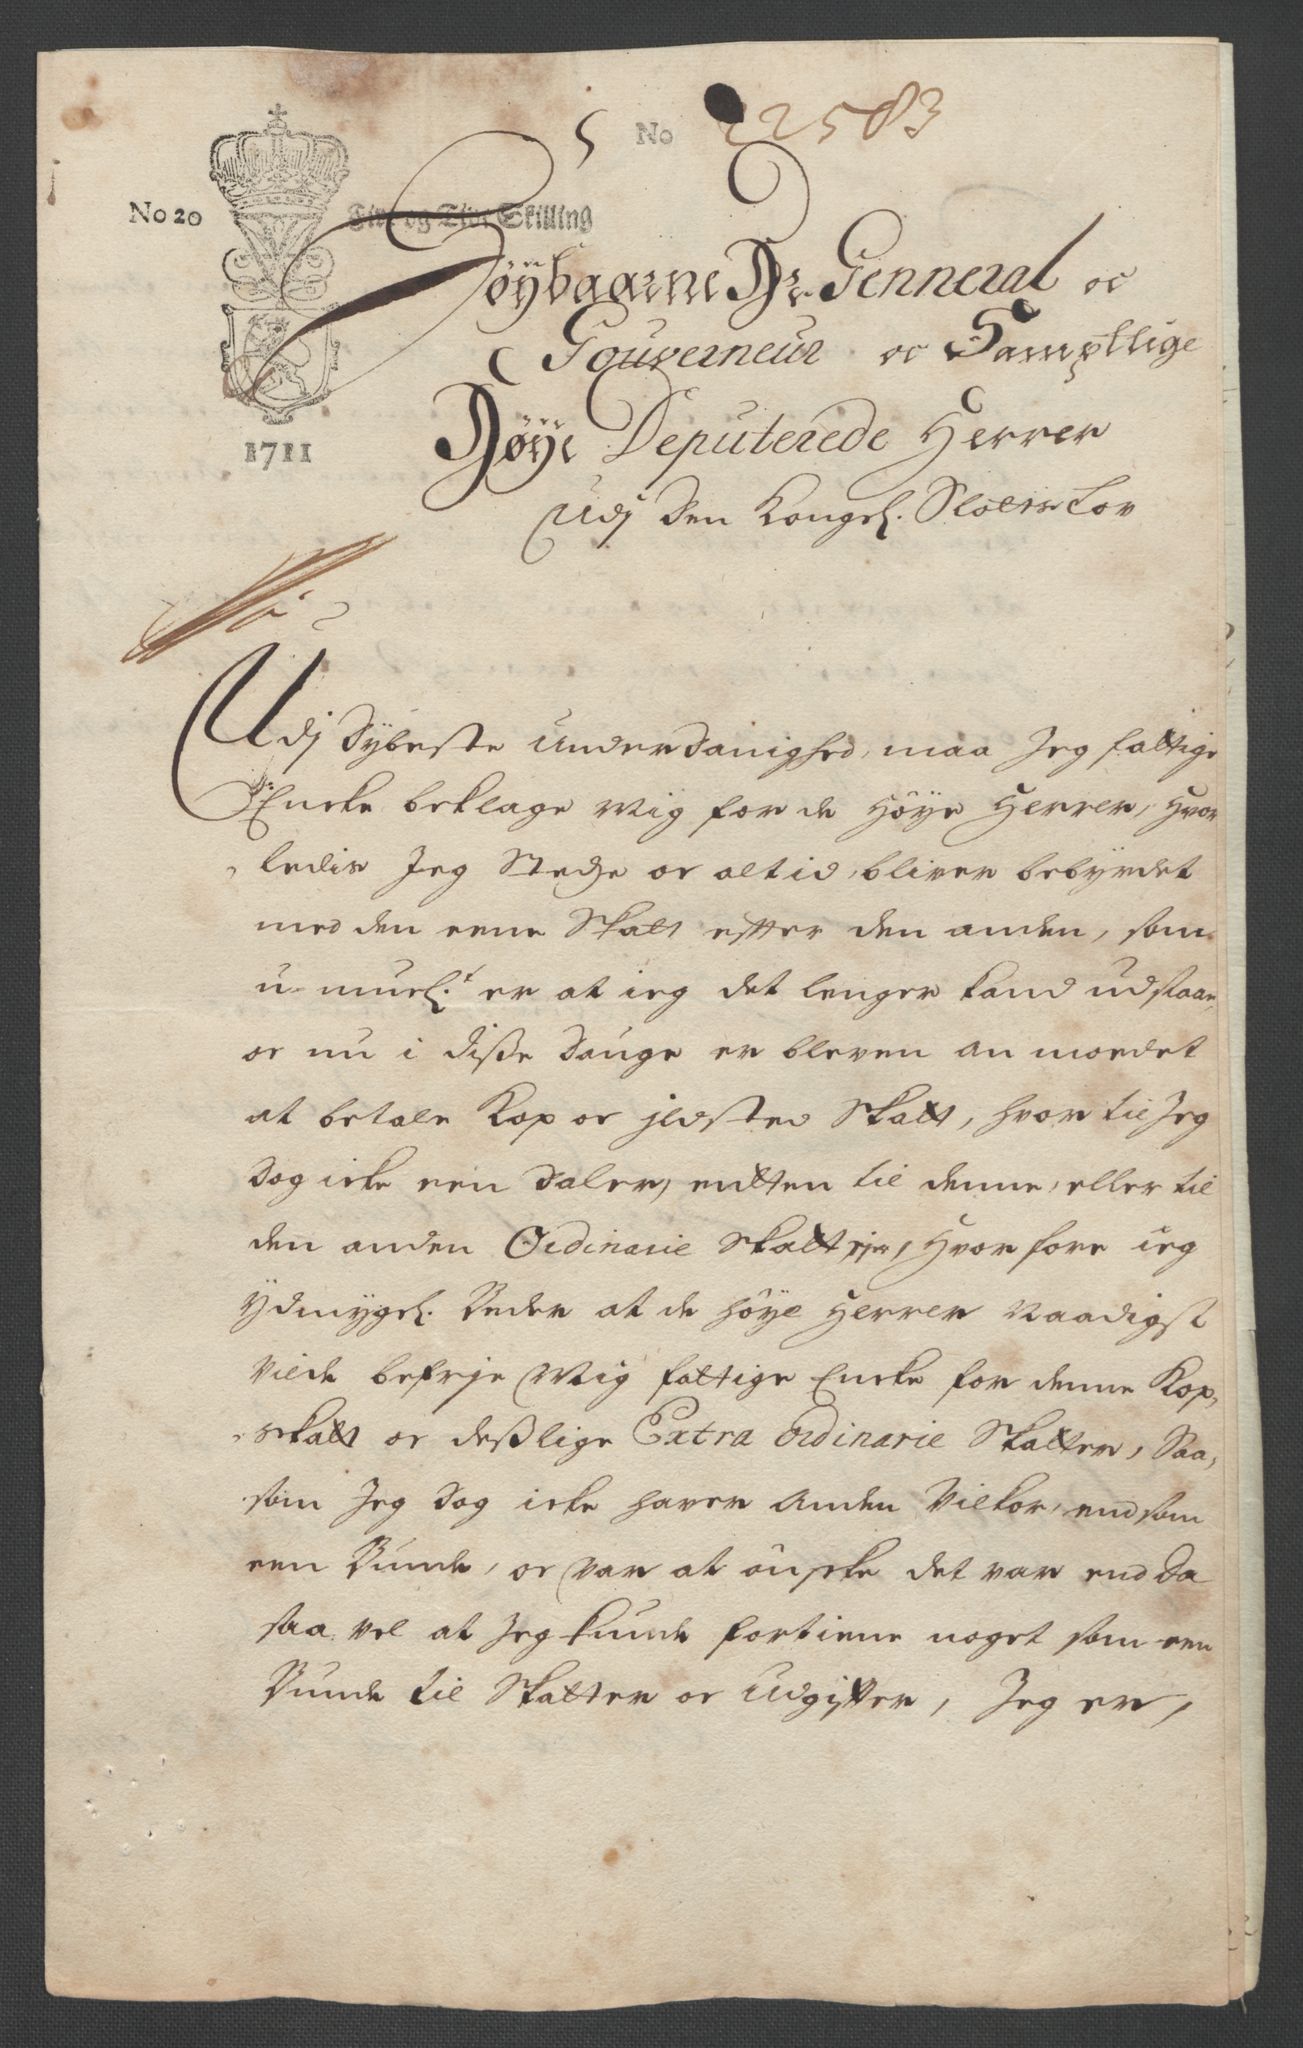 5 No 22583
No 20 Fire og Tive Skilling
Höybaarne Hr. Genneral oc
Gouverneur oc Samptlige
Höye Deputerede Herrer
Udj den Kongel. Slotzlov
1711
Udj dÿbeste underdanighed, maa Jeg fattige
Encke beklage Mig for de Höye Herrer, Hvor
ledis Jeg Stedze oc altid bliver bebyrdet
med den eene Skatt effter den anden, som
u-muel.t er at ieg det lenger kand udstaae,
oc nu i disse dauge er bleven an moedet
at betale Kop oc jldsted Skatt, hvor til Jeg
dog icke een daler, entten til denne, eller til
den anden Ordinarie Skatt ejer, Hvor fore ieg
ÿdmÿgel. Beder at de höye Herrer Naadigst
vilde befrje Mig fattige Encke for denne Kop,
skatt oc desslige Extra Ordinarie Skatter, Saa,
som Jeg dog icke haver Anden Vilkor, end som
een Bunde, oc var at önske det var end da
saa vel at Jeg kunde fortiene noget som een
Bunde til Skatter oc Udgifter, Jeg er,